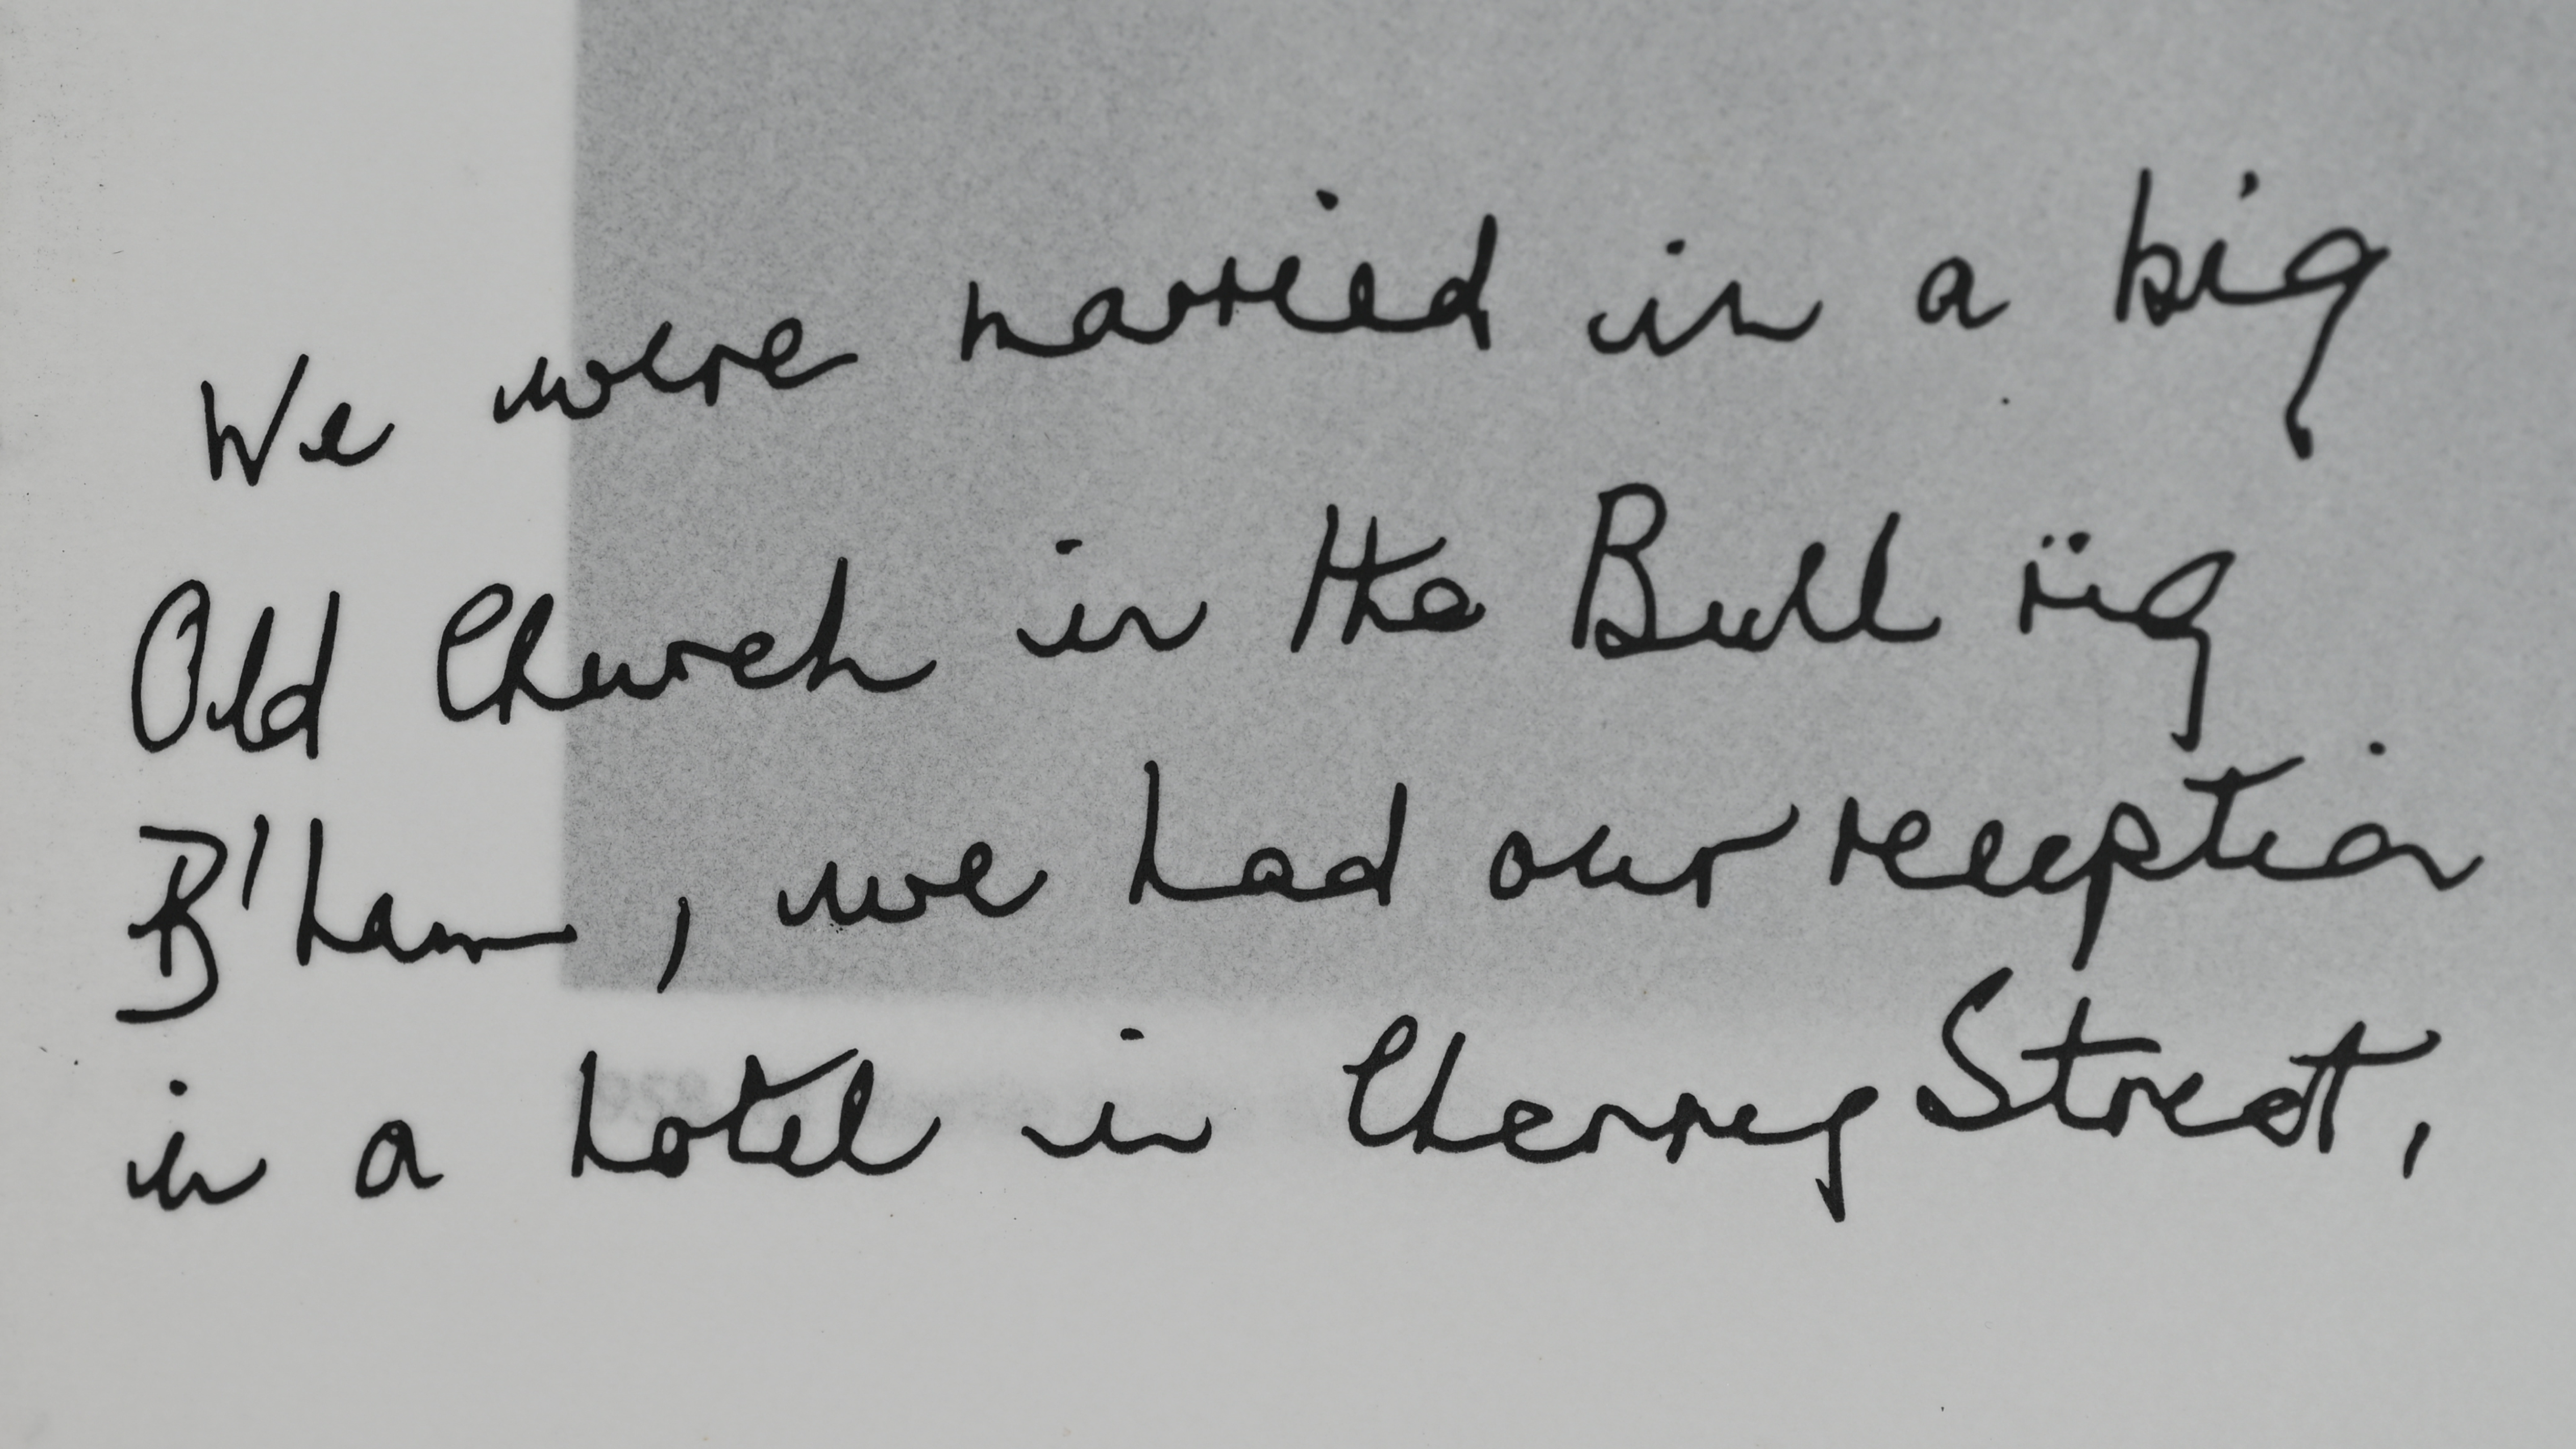 We were married in a big
Old Church in the Bull ring
B'ham, we had our reception
in a hotel in Cherry Street,